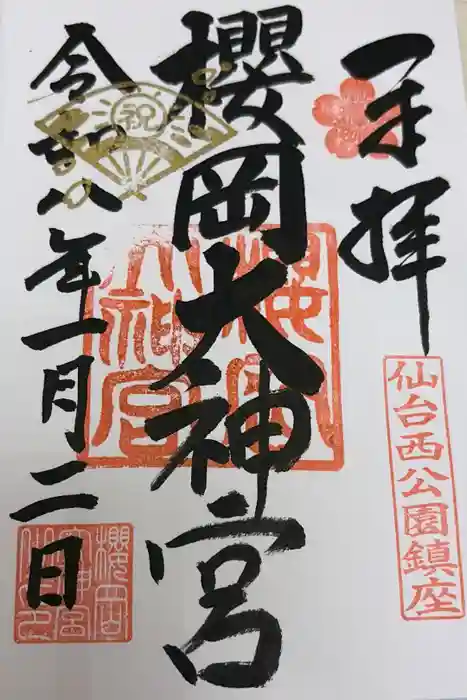 奉拝
仙台西公園鎮座
櫻岡大神宮
櫻岡大神宮
祝
令和八年一月二日